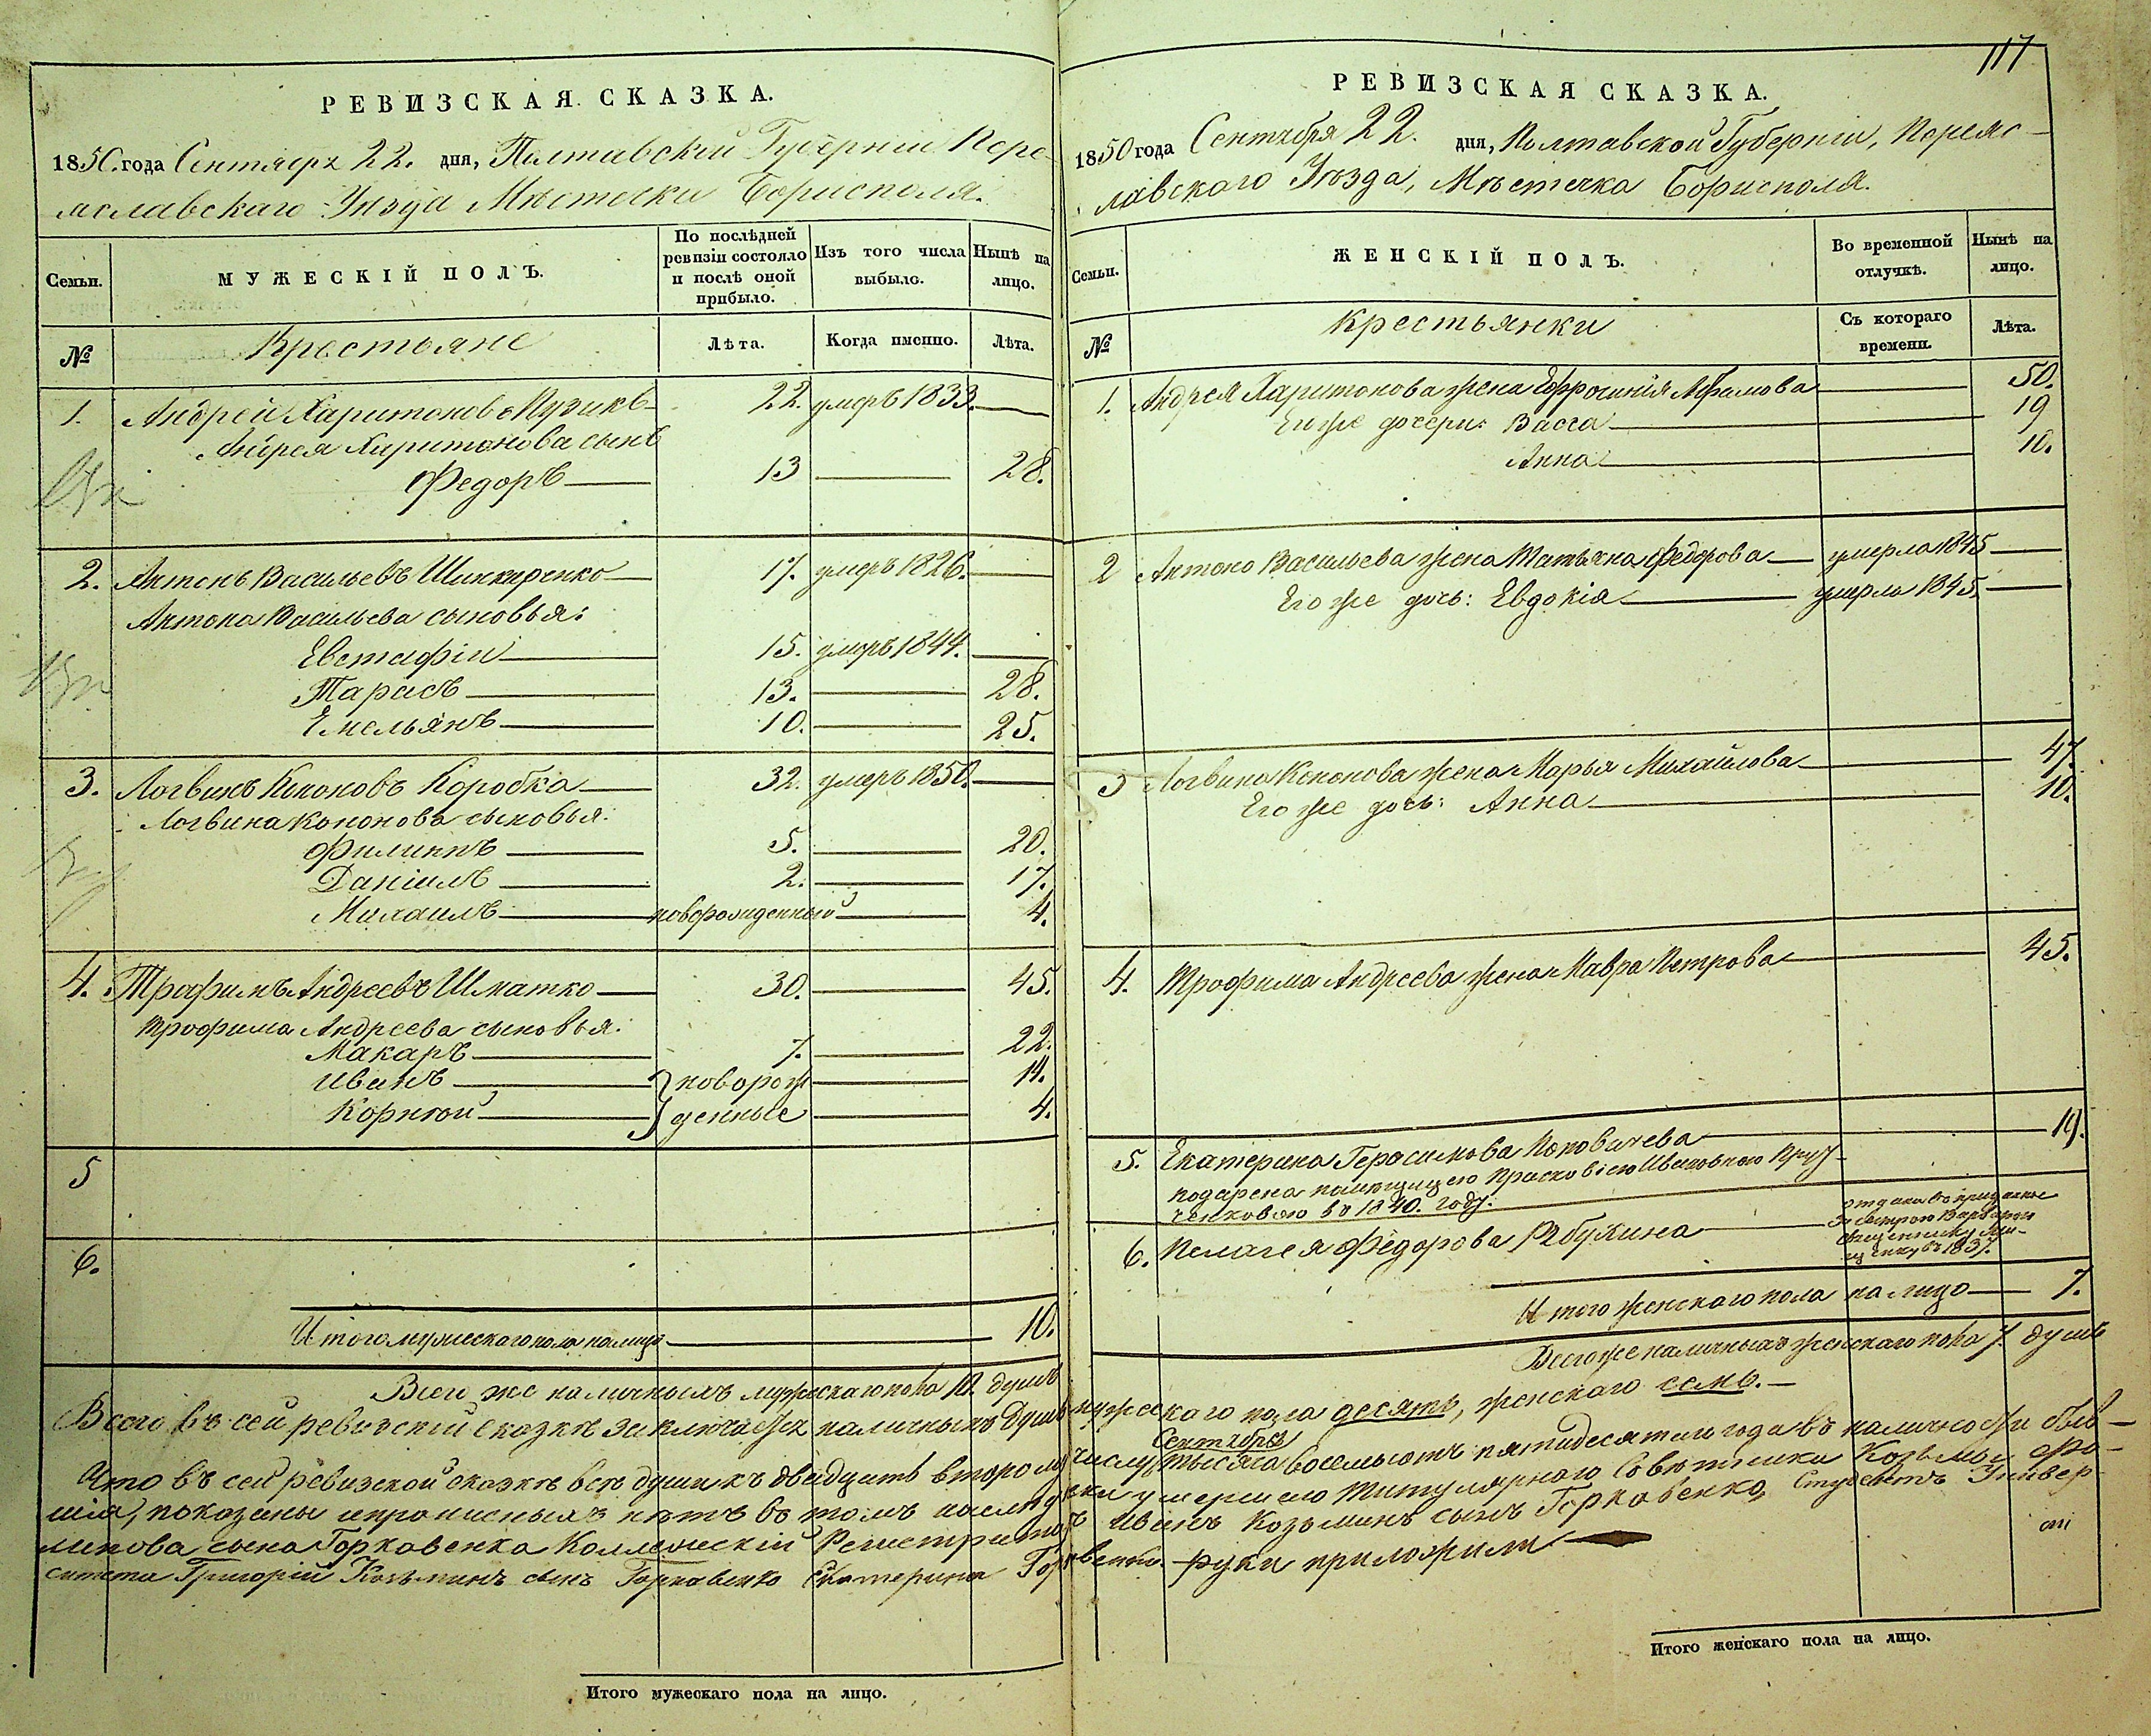 РЕВИЗСКАЯ СКАЗКА.
1850 года Сентября 22. дня, Полтавской Губерніи Пере-
яславскаго Уѣзда Мѣстечка Борисполя.
Семьи.
МУЖЕСКІЙ ПОЛЪ.
По послѣдней ревизіи состояло и послѣ оной прибыло.
Изъ того числа выбыло.
Нынѣ на лицо.
№
Крестьяне
Лѣта.
Когда именно.
Лѣта.
1. Андрей Харитоновъ Музика 22. умеръ 1833.
Андрея Харитонова сынъ
Федоръ 13 28.
2. Антонъ Васильевъ Шинкаренко 17. умеръ 1826.
Антона Васильева сыновья:
Евстафій 15. умеръ 1844.
Тарасъ 13. 28.
Емельянъ 10. 25.
3. Логвинъ Кононовъ Коробка 32. умеръ 1850.
Логвина Кононова сыновья:
Филиппъ 5. 20.
Даніилъ 2. 17.
Михаилъ новорожденный 4.
4. Трофимъ Андреевъ Шматко 30. 45.
Трофима Андреева сыновья:
Макаръ 7. 22.
Иванъ } новорож 14.
Корнѣй } денные 4.
5
6.
Итого мужескаго пола на лицо 10.
Всего же наличныхъ мужескаго пола 10. душъ
117
РЕВИЗСКАЯ СКАЗКА.
1850 года Сентября 22. дня, Полтавской Губерніи, Переяс-
лавскаго Уѣзда, Мѣстечка Борисполя.
Семьи.
ЖЕНСКІЙ ПОЛЪ.
Во временной отлучкѣ.
Нынѣ на лицо.
№
Крестьянки
Съ котораго времени.
Лѣта.
1. Андрея Харитонова жена Ефросинія 50.
Его же дочери: Васса 19
Анна 10.
2 Антона Васильева жена Татьяна Федорова умерла 1845
Его же дочь: Евдокія умерла 1845.
3 Логвина Кононова жена Марья Михайлова 47.
Его же дочь: Анна 10.
4. Трофима Андреева жена Мавра Петрова 45.
5. Екатерина Герасимова Поповичева 19.
подарена помѣщицею Прасковіею Ивановною
въ 1840. году.
6. Пелагея Федорова отдана въ приданые
за сестрою Варварою
священнику
въ 1837.
Итого женскаго пола на лицо 7.
Всего же наличныхъ женскаго пола 7. душъ
Всего въ сей ревизской сказкѣ заключается наличныхъ душъ мужескаго пола десять, женскаго семь.
Сентября
Что въ сей ревизской сказкѣ всѣ души къ двадцать второму числу тысяча восемьсотъ пятидесятаго года въ наличности быв-
шія, показаны и прописныхъ нѣтъ въ томъ наслѣдники умершаго Титулярнаго Совѣтника Козьмы Фо-
минова сына Горковенка Коллежскій Регистраторъ Иванъ Козьминъ сынъ Горковенко, Студентъ Универ-
ситета Григорій Козьминъ сынъ Горковенко Екатерина Горковенко руки приложили
Итого мужескаго пола на лицо.
Итого женскаго пола на лицо.